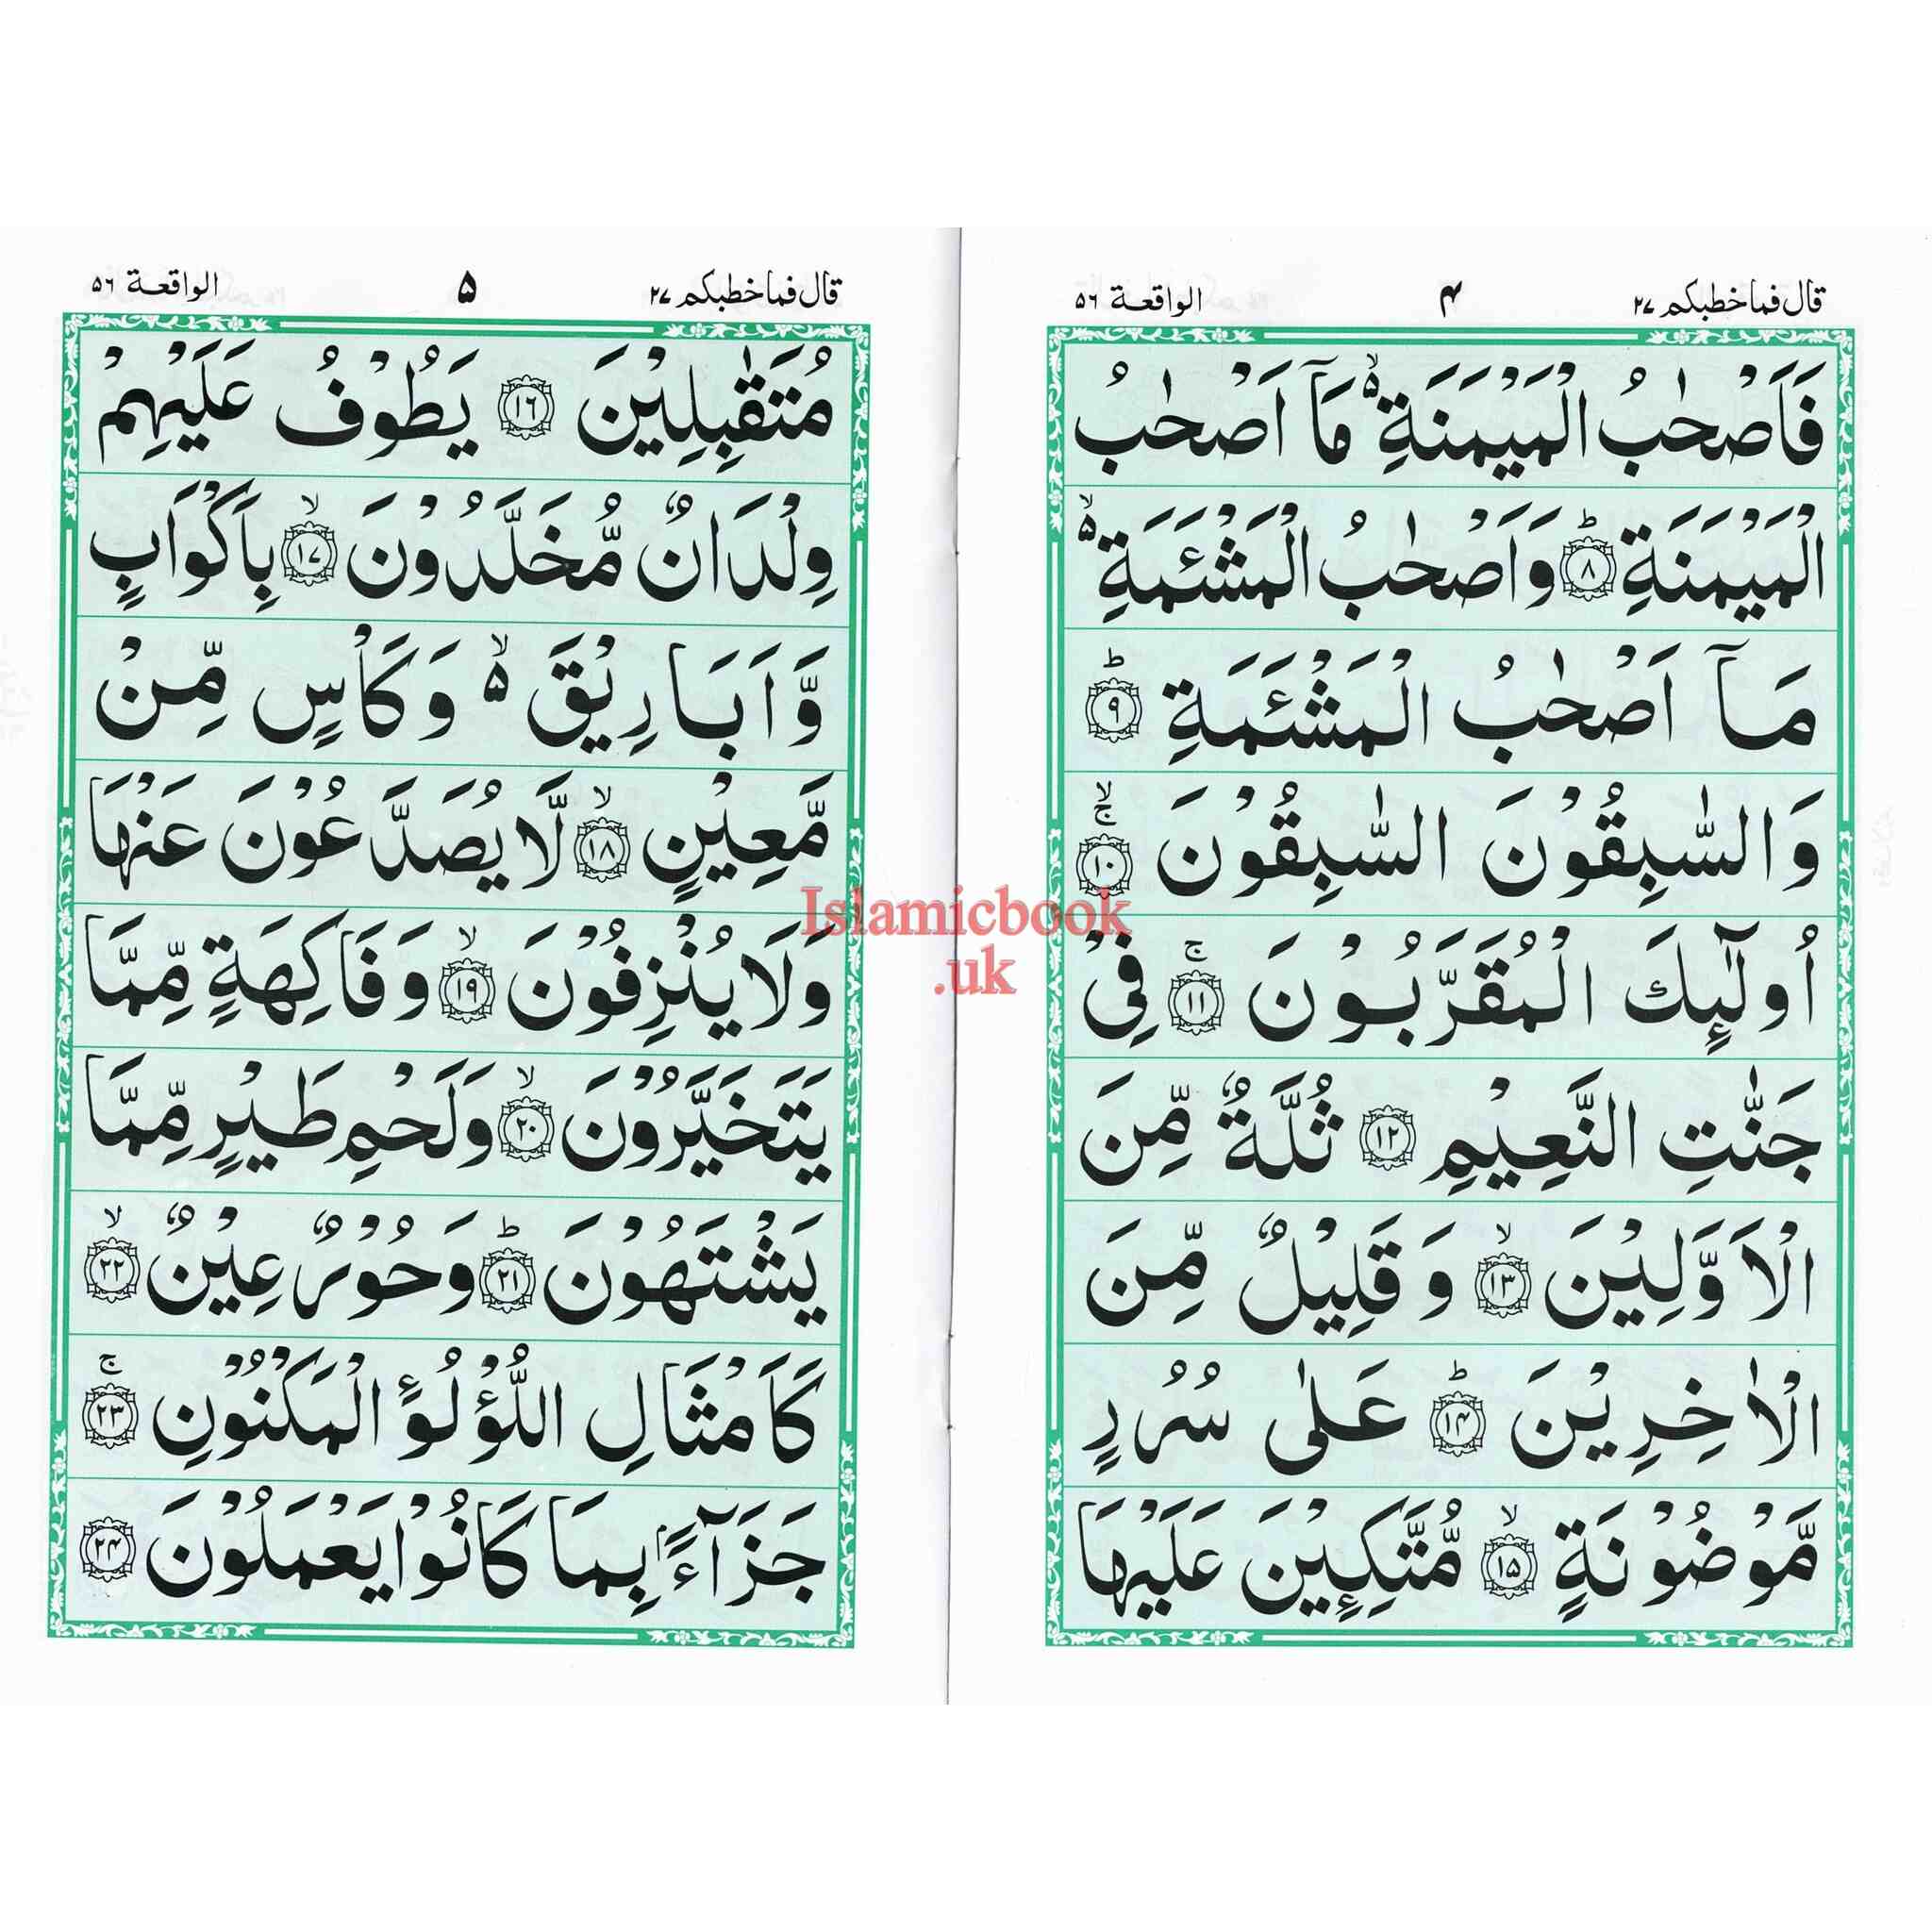 قال فما خطبكم ٢٧
۴
الواقعة ٥٦
فَاَصْحٰبُ الْمَيْمَنَةِ ۙ۬ مَآ اَصْحٰبُ
الْمَيْمَنَةِ ؕ‏ ﴿۸﴾ وَاَصْحٰبُ الْمَشْئَمَةِ ۙ۬
مَآ اَصْحٰبُ الْمَشْئَمَةِ ؕ‏ ﴿۹﴾
وَالسّٰبِقُوْنَ السّٰبِقُوْنَ ۚ ۙ‏ ﴿۱۰﴾
اُولٰٓئِكَ الْمُقَرَّبُوْنَ ۚ‏ ﴿۱۱﴾ فِىْ
جَنّٰتِ النَّعِيْمِ‏ ﴿۱۲﴾ ثُلَّةٌ مِّنَ
الْاَوَّلِيْنَ ۙ‏ ﴿۱۳﴾ وَقَلِيْلٌ مِّنَ
الْاٰخِرِيْنَ ؕ‏ ﴿۱۴﴾ عَلٰى سُرُرٍ
مَّوْضُوْنَةٍ ۙ‏ ﴿۱۵﴾ مُّتَّكِـِٕيْنَ عَلَيْهَا
قال فما خطبكم ٢٧
۵
الواقعة ٥٦
مُتَقٰبِلِيْنَ‏ ﴿۱۶﴾ يَطُوْفُ عَلَيْهِمْ
وِلْدَانٌ مُّخَلَّدُوْنَ ۙ‏ ﴿۱۷﴾ بِاَكْوَابٍ
وَّاَبَارِيْقَ ۙ۬ وَكَاْسٍ مِّنْ
مَّعِيْنٍ ۙ‏ ﴿۱۸﴾ لَّا يُصَدَّعُوْنَ عَنْهَا
وَلَا يُنْزِفُوْنَ ۙ‏ ﴿۱۹﴾ وَفَاكِهَةٍ مِّمَّا
يَتَخَيَّرُوْنَ ۙ‏ ﴿۲۰﴾ وَلَحْمِ طَيْرٍ مِّمَّا
يَشْتَهُوْنَ ؕ‏ ﴿۲۱﴾ وَحُوْرٌ عِيْنٌ ۙ‏ ﴿۲۲﴾
كَاَمْثَالِ اللُّؤْلُـؤِ الْمَكْنُوْنِ ۚ‏ ﴿۲۳﴾
جَزَآءًۢ بِمَا كَانُوْا يَعْمَلُوْنَ‏ ﴿۲۴﴾
Islamicbook
.uk